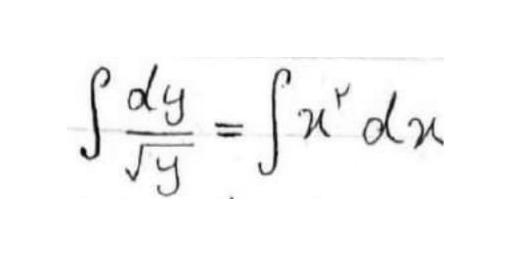 ∫ dy/√y = ∫ x² dx